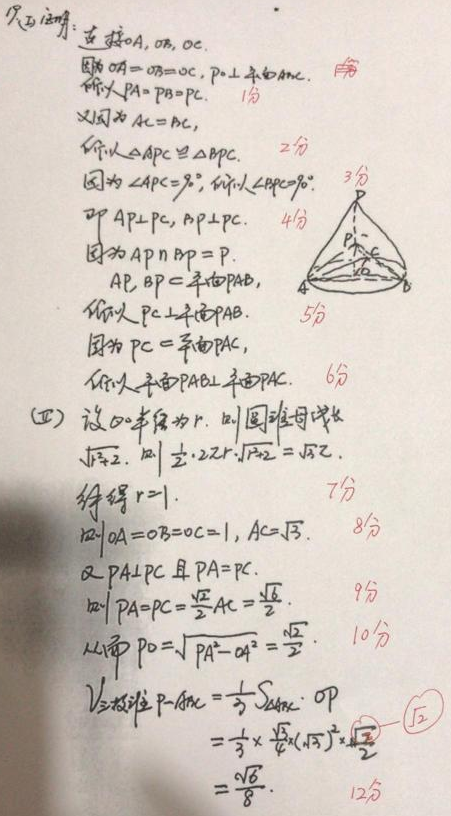 (I)证明:
连接OA, OB, OC.
因为OA=OB=OC, PO⊥平面ABC.
所以PA=PB=PC. 1分
又因为AC=BC,
所以△APC≌△BPC. 2分
因为∠APC=90°, 所以∠BPC=90°. 3分
即AP⊥PC, BP⊥PC. 4分
因为AP∩BP=P.
AP, BP⊂平面PAB,
所以PC⊥平面PAB. 5分
因为PC⊂平面PAC,
所以平面PAB⊥平面PAC. 6分
D
P
C
A
O
B
(Ⅱ) 设⊙O半径为r. 则圆锥母线长
√r²+2. 则 1/2·2πr·√r²+2=√3π.
解得r=1. 7分
则OA=OB=OC=1, AC=√3. 8分
又PA⊥PC且PA=PC.
则PA=PC=√2/2 AC=√6/2. 9分
从而PO=√PA²-OA²=√2/2. 10分
V三棱锥P-ABC=1/3 S△ABC·OP
=1/3×√3/4×(√3)²×√2/2 √2
=√6/8. 12分